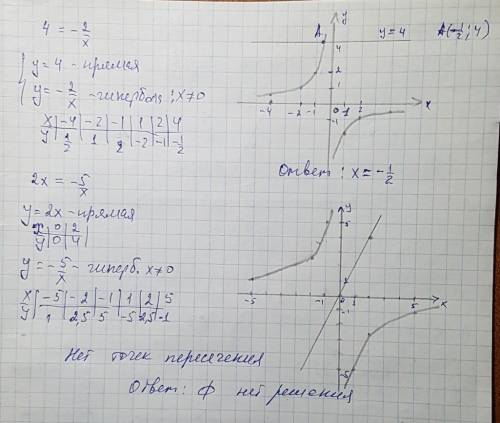 4 = -2/x
{ y = 4 - прямая
y = -2/x - гипербола; x≠0
x | -4 | -2 | -1 | 1 | 2 | 4
y | 1/2 | 1 | 2 | -2 | -1 | -1/2
y
A
y = 4
A(-1/2; 4)
4
2
1
-4 -2 -1 0 1 2 x
-1
Ответ: x = -1/2
2x = -5/x
y = 2x - прямая
x | 0 | 2
y | 0 | 4
y = -5/x - гиперб. x≠0
x | -5 | -2 | -1 | 1 | 2 | 5
y | 1 | 2,5 | 5 | -5 | -2,5 | -1
y
5
-5 -1 0 1 5 x
-1
-5
Нет точек пересечения
Ответ: ф нет решения